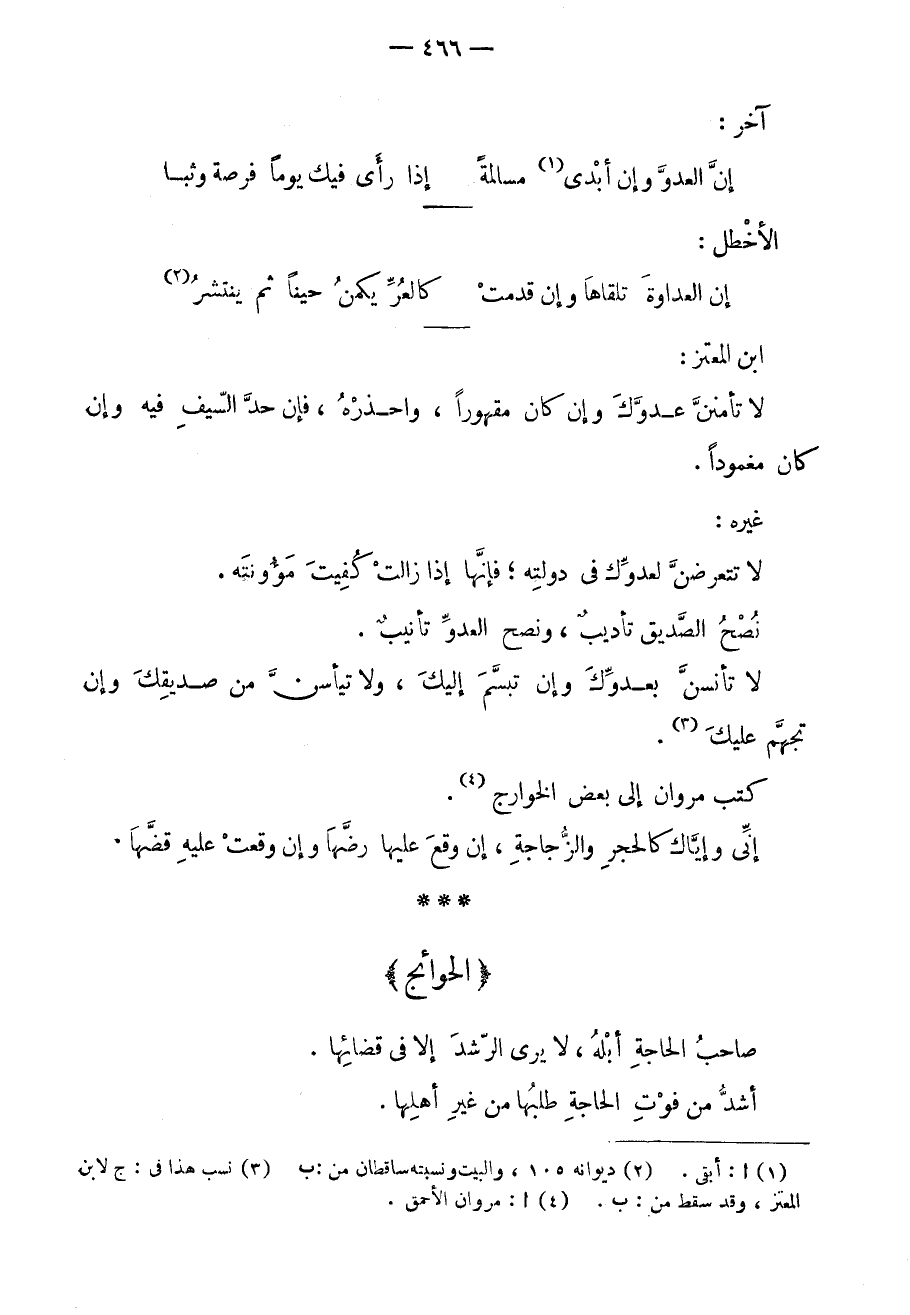 — ٤٦٦ —
آخر :
إنَّ العدوَّ وإن أبْدى(١) مسالمةً إذا رأَى فيك يوماً فرصة وثبا
الأخْطل :
إن العداوةَ تلقاهَا وإن قدمتْ كالعُرِّ يكمنُ حيناً ثم ينتشرُ(٢)
ابن المعتز :
لا تأمننَّ عدوَّكَ وإن كان مقهوراً ، واحذرْهُ ، فإن حدَّ السّيفِ فيه وإن
كان مغموداً .
غيره :
لا تتعرضنَّ لعدوِّك فى دولتِه ؛ فإنَّها إذا زالتْ كُفِيتَ مَؤُونتَه .
نُصْحُ الصَّديق تأديبٌ ، ونصح العدوِّ تأنيبٌ .
لا تأنسنَّ بعدوِّكَ وإن تبسَّمَ إليكَ ، ولا تيأسنَّ من صديقِكَ وإن
تجهَّم عليكَ (٣) .
كتب مروان إلى بعض الخوارج (٤) .
إنِّى وإيَّاك كالحجرِ والزُّجاجةِ ، إن وقعَ عليها رضَّهَا وإن وقعتْ عليهِ قضَّهَا .
***
﴿ الحوائج ﴾
صاحبُ الحاجةِ أبْلهُ ، لا يرى الرّشدَ إلا فى قضائِها .
أشدُّ من فوْتِ الحاجةِ طلبُها من غيرِ أهلِها .
(١) ا : أبقى . (٢) ديوانه ١٠٥ ، والبيت ونسبته ساقطان من : ب (٣) نسب هذا فى : ج لابن
المعتز ، وقد سقط من : ب . (٤) ا : مروان الأحمق .